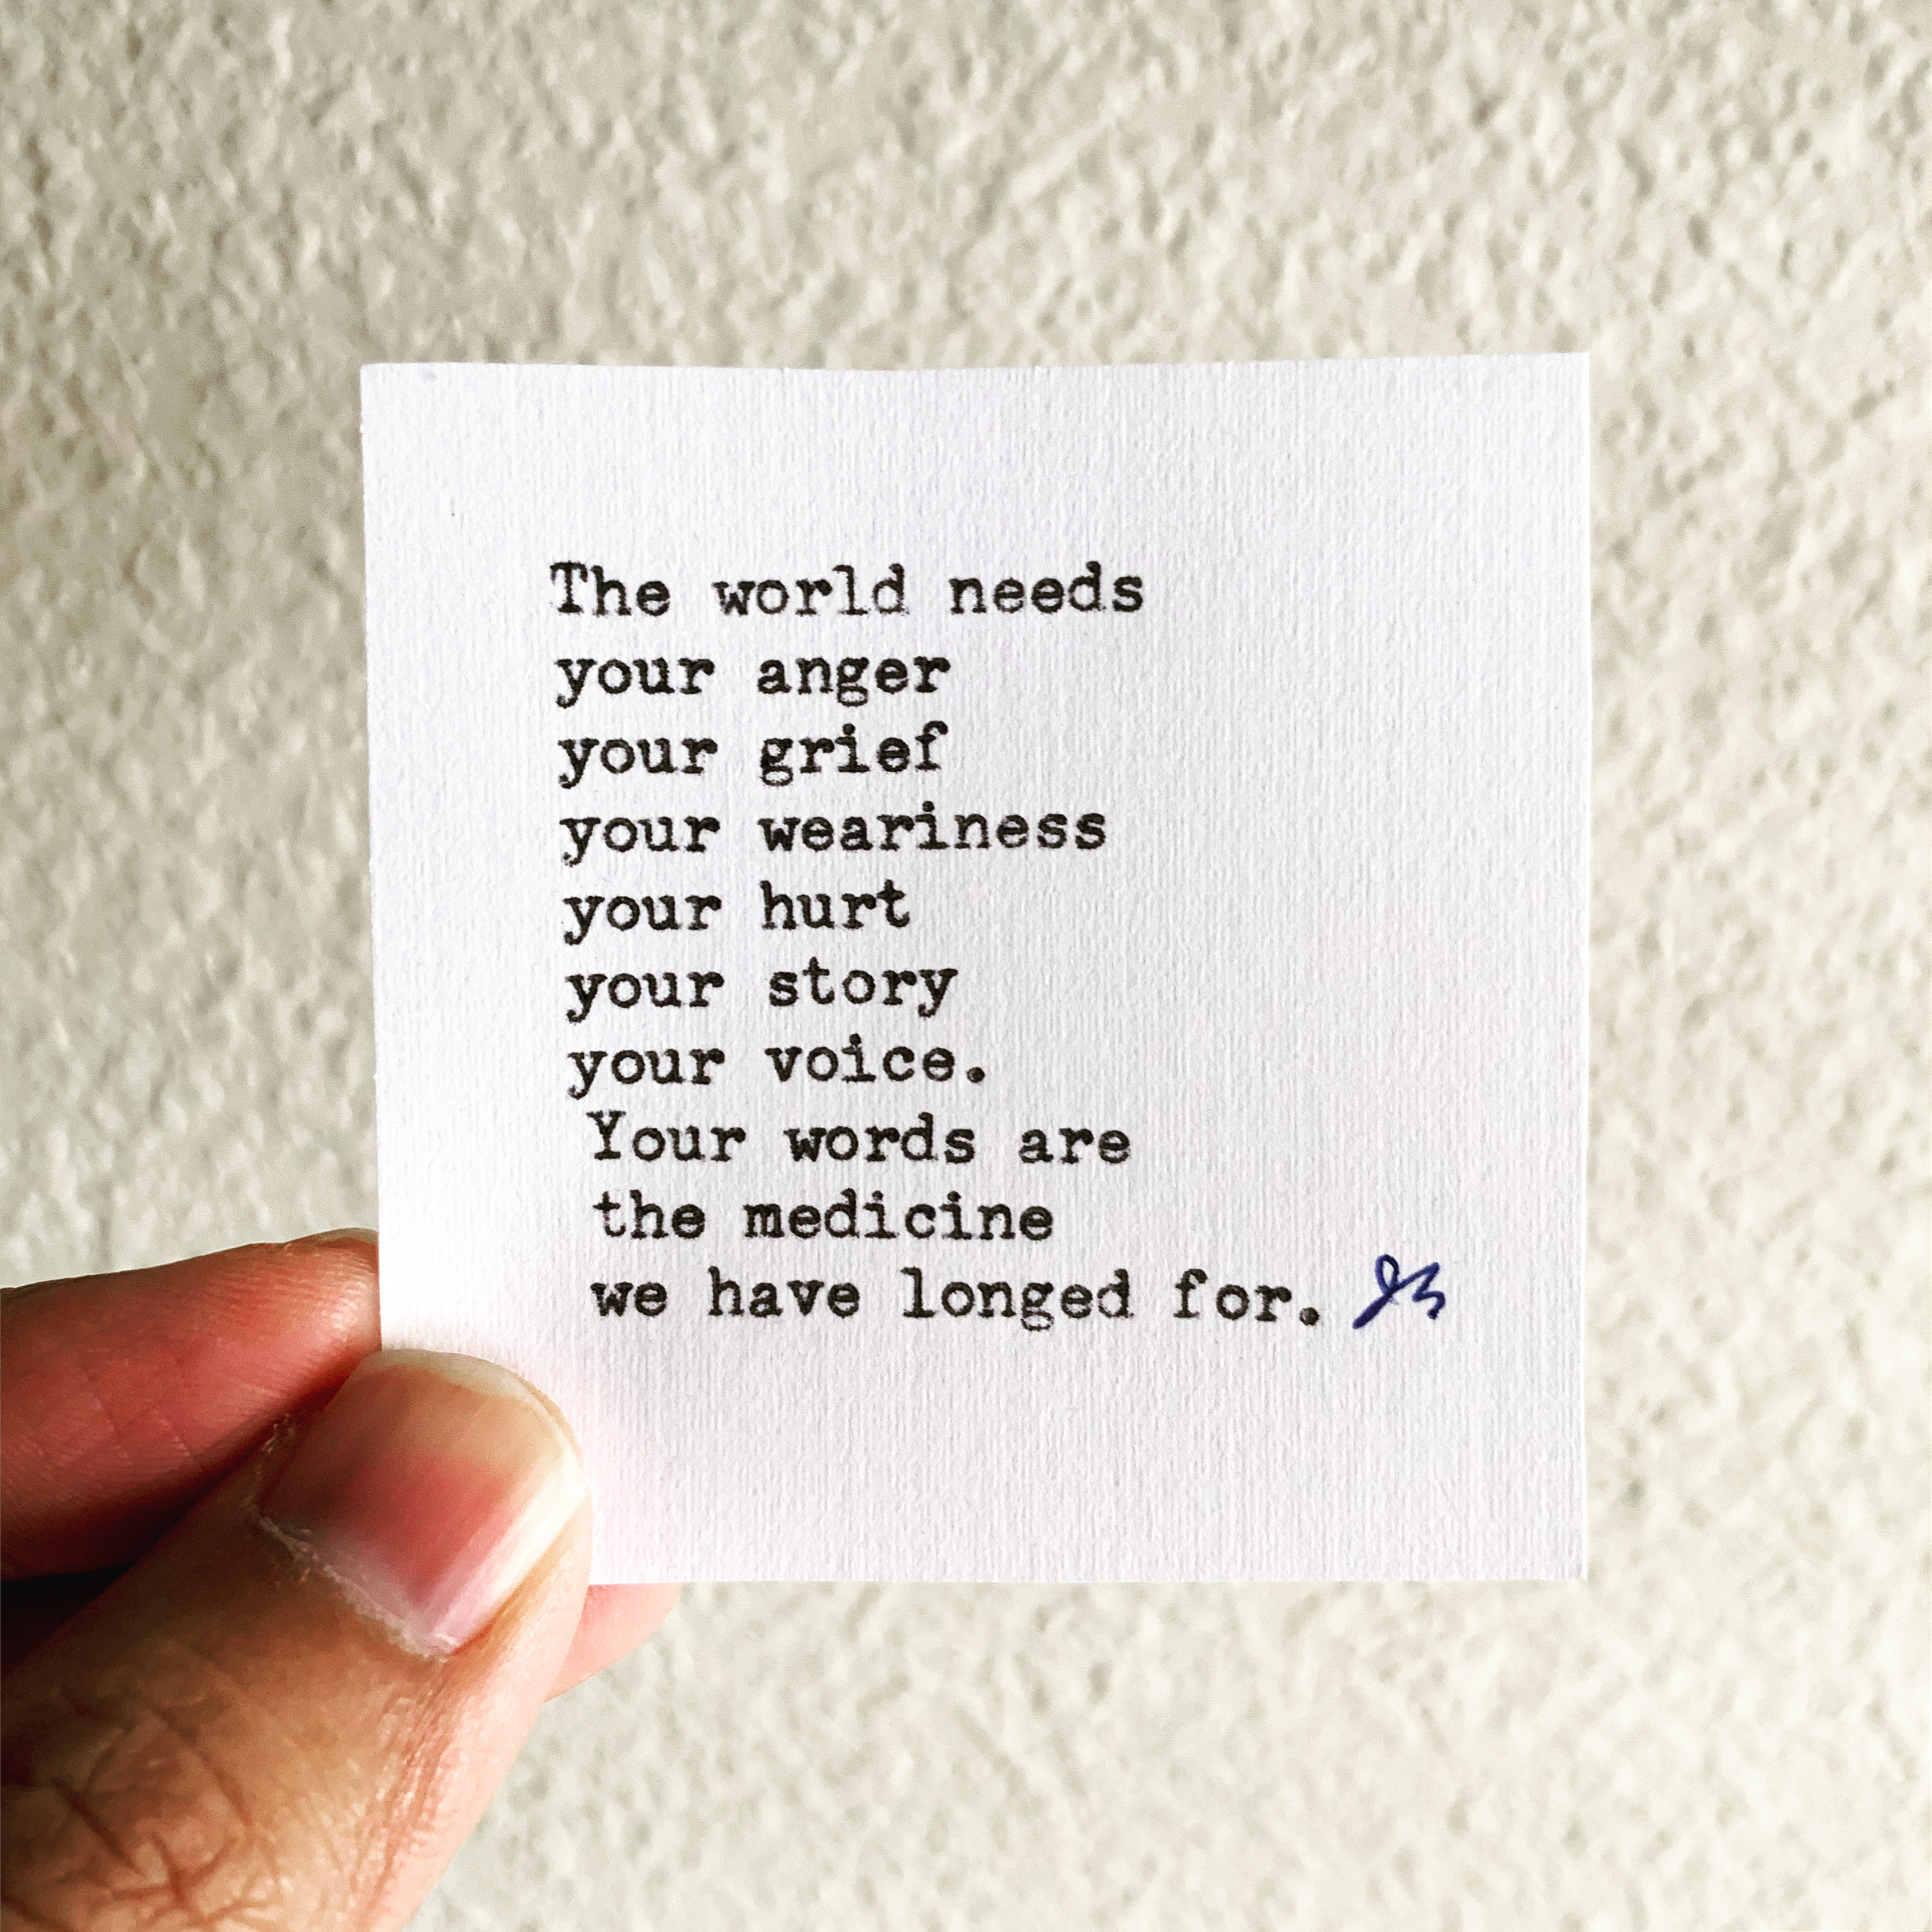 The world needs
your anger
your grief
your weariness
your hurt
your story
your voice.
Your words are
the medicine
we have longed for.